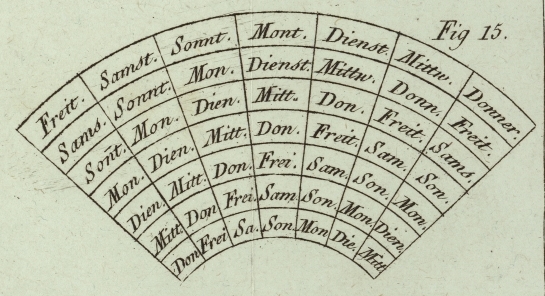 Fig 15.
Freit. Samst. Sonnt. Mont. Dienst. Mittw. Donner.
Sams. Sonnt. Mon. Dienst. Mittw. Donn. Freit.
Soñt. Mon. Dien. Mitt. Don. Freit. Sams.
Mon. Dien. Mitt. Don. Freit. Sam. Son.
Dien. Mitt. Don. Frei. Sam. Son. Mon.
Mitt. Don Frei Sam. Son. Mon. Dien.
Don Frei Sa. Son. Mon Die. Mitt